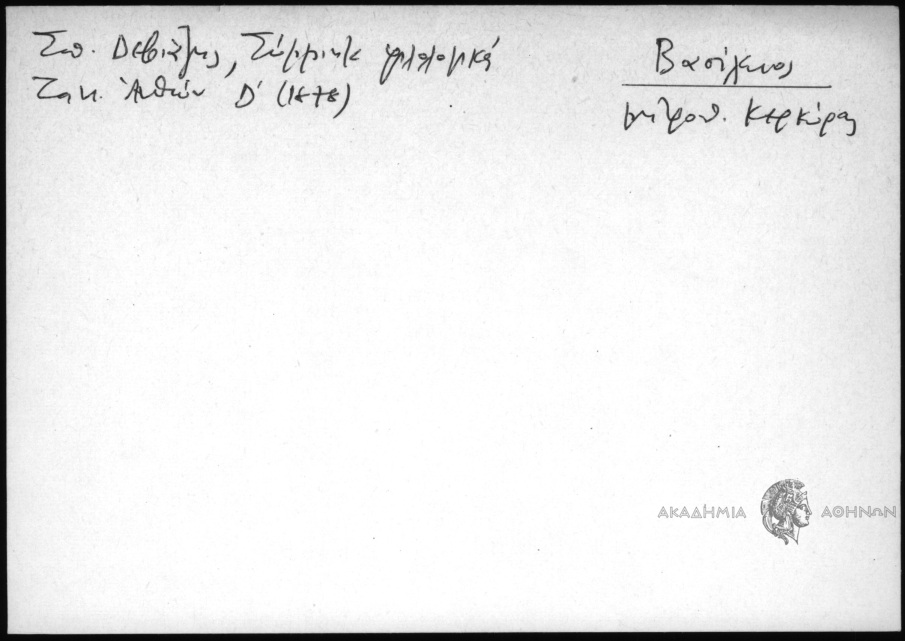 Σπ. Δεβιάζης, Σύμμικτα φιλολογικά
Ζακ. Ἀνθών Δ' (1878)
Βασίλειος
μητροπ. Κερκύρας
ΑΚΑΔΗΜΙΑ ΑΘΗΝΩΝ